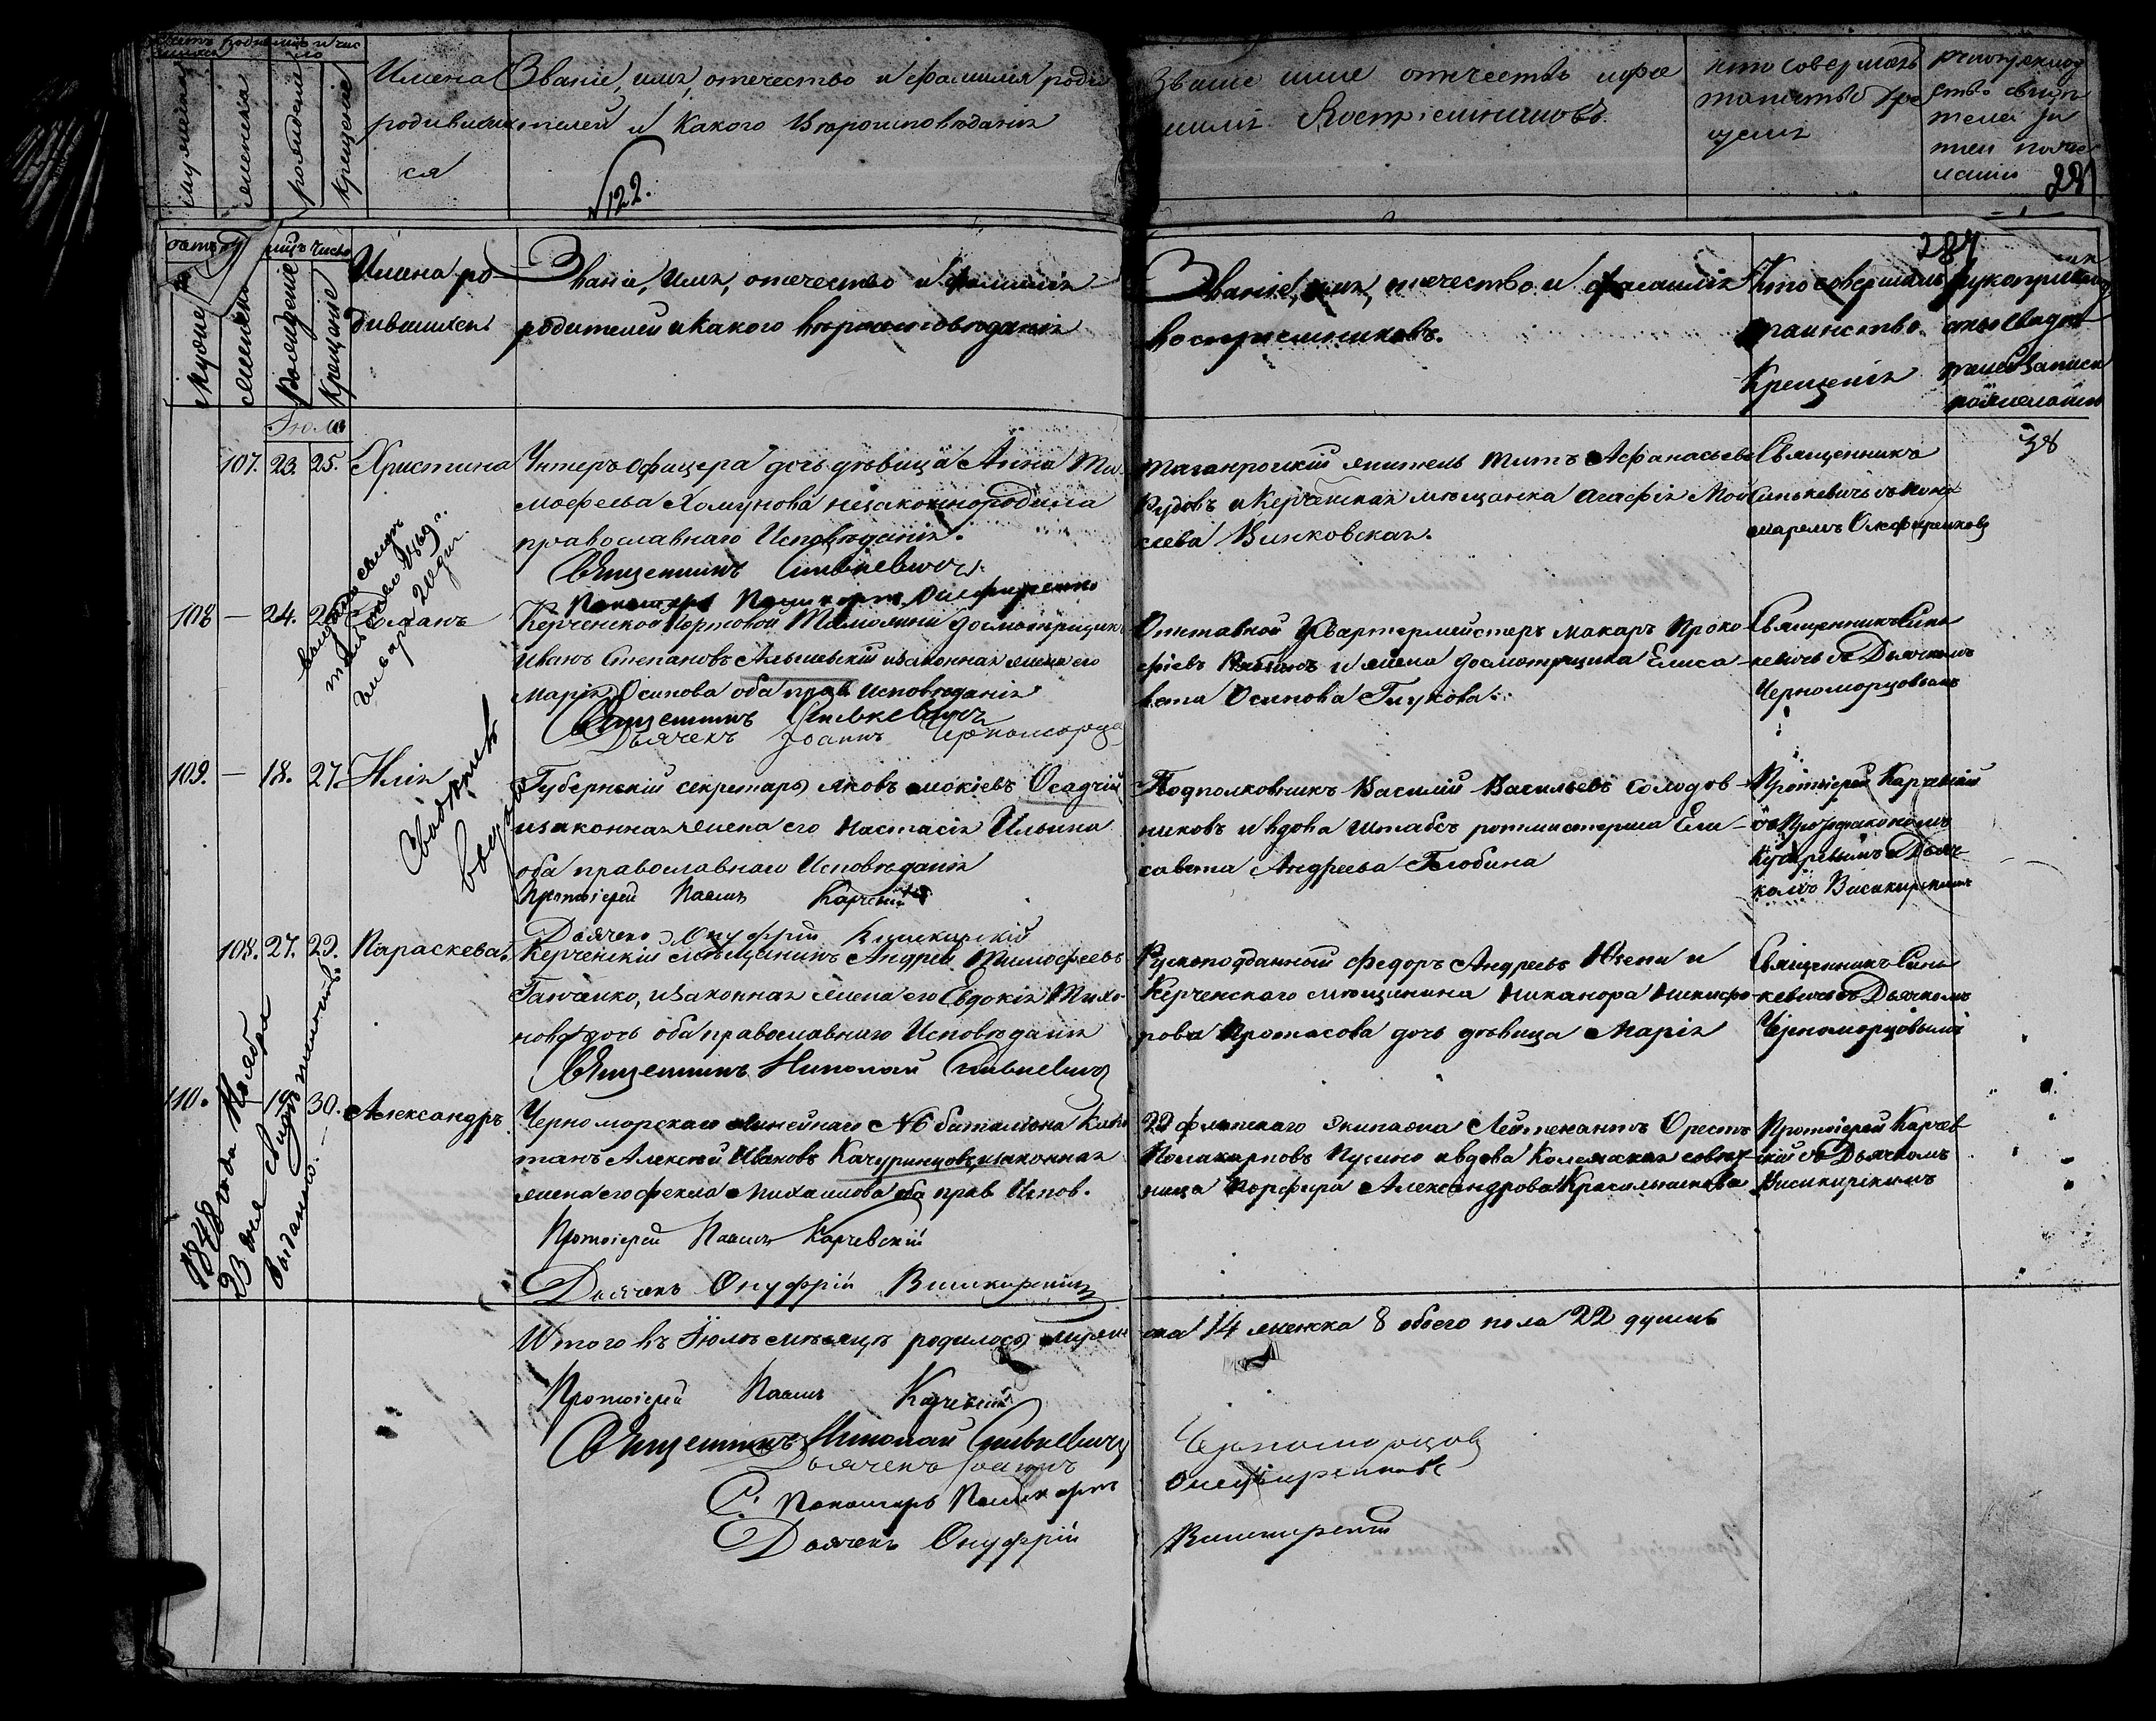 Имена
родивших
ся
Званіе, имя, отечество и фамилія роди
телей и какого вѣроисповѣданія
№122.
Званіе имя отечество и фа
милія Воспріемниковъ
Кто совершалъ
таинство Кре
щенія
мужеска
женска
рожденія
крещенія
287
мѣц. число
Рожденіе
Крещеніе
Имена ро-
дившихся
Званіе, имя, отечество и фамилія
родителей и какого вѣроисповѣданія
Званіе, имя, отечество и фамилія
воспріемниковъ.
Кто совершалъ
таинство
Крещенія
рукоприклад
ство свидѣ
телей записи
по желанію
Іюль
107. 23. 25. Христина
Унтеръ офицера дочь дѣвица Анна Ти-
мофеева Хомунова незаконнородила
православнаго Исповѣданія.
Священникъ Синькевичъ
Пономарь Поликарпъ Олефиренко
Таганрогскій житель Титъ Афанасьевъ
Рудовъ и Керченская мѣщанка Агафія Мои
сеева Винковская.
Священникъ
Синькевичъ съ Поно
маремъ Олефиренковъ
38
108 — 24. 26. Романъ
Керченской Портовой Таможни досмотрщикъ
Иванъ Степановъ и законная жена его
Марія Осипова оба прав Исповѣданія
Священникъ Синькевичъ
Дьячекъ Іоаннъ Черноморцов
Отставной Квартермейстеръ Макаръ Проко
фіевъ и жена досмотрщика Елиса-
вета Осипова Глухова.
Священникъ Синь
кевичъ съ Дьячкомъ
Черноморцовымъ
109. — 18. 27. Илія
Губернскій секретарь Яковъ Мокіевъ Осадчій
и законная жена его Настасія Ильина
оба православнаго Исповѣданія
Протоіерей Павелъ Карчевскій
Дьячекъ Онуфрій Вишкирскій
Подполковникъ Василій Васильевъ Солодов-
никовъ и вдова штабсъ ротмистерша Ели-
савета Андреева Глобина
Протоіерей Карчевскій
съ Протодіакономъ
и Дьяч
комъ Вишкирскимъ
108. 27. 29. Параскева.
Керченскій мѣщанинъ Андрей Тимофеевъ
Ганченко, и законная жена его Евдокія Тихо-
нова дочь оба православнаго Исповѣданія
Священникъ Николай Синькевичъ
Рускоподданный Федоръ Андреевъ и
Керченскаго мѣщанина Никанора Никифо
рова Протасова дочь дѣвица Марія
Священникъ Синь
кевичъ съ Дьячкомъ
Черноморцовымъ
110. — 19. 30. Александръ.
Черноморскаго линейнаго №6 баталіона Капи
танъ Алексѣй Ивановъ Качуринцовъ и законная
жена его Фекла Михаилова оба прав Испов.
Протоіерей Павелъ Карчевскій
Дьячекъ Онуфрій Вишкирскій
22 флотскаго экипажа Лейтенантъ Орестъ
Поликарповъ Пусино и вдова Колежская совѣт
ница Порфира Александрова Красильникова
Протоіерей Карчев
скій съ Дьячкомъ
Вишкирскимъ
1848 года Ноября
23 дня Свидѣтельство
выдано.
Итого въ Іюлѣ мѣсяцѣ родилось мужес
ка 14 женска 8 обоего пола 22 душъ
Протоіерей Павелъ Карчевскій
Священникъ Николай Синькевичъ
Дьячекъ Іоаннъ Черноморцовъ
С. Пономарь Поликарпъ Олефиренковъ
Дьячекъ Онуфрій Вишкирскій